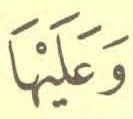 وَعَلَيْهَا